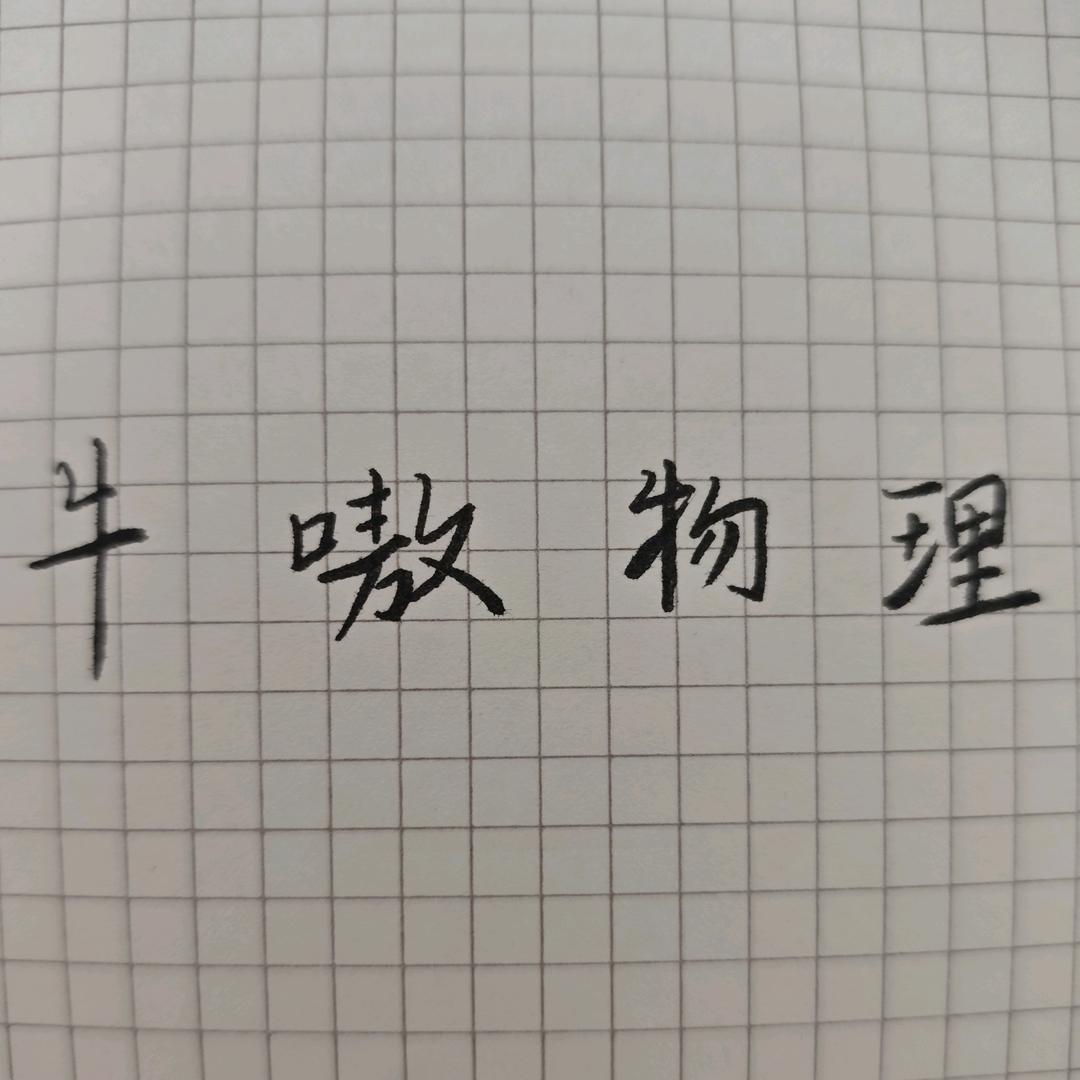 牛嗷物理